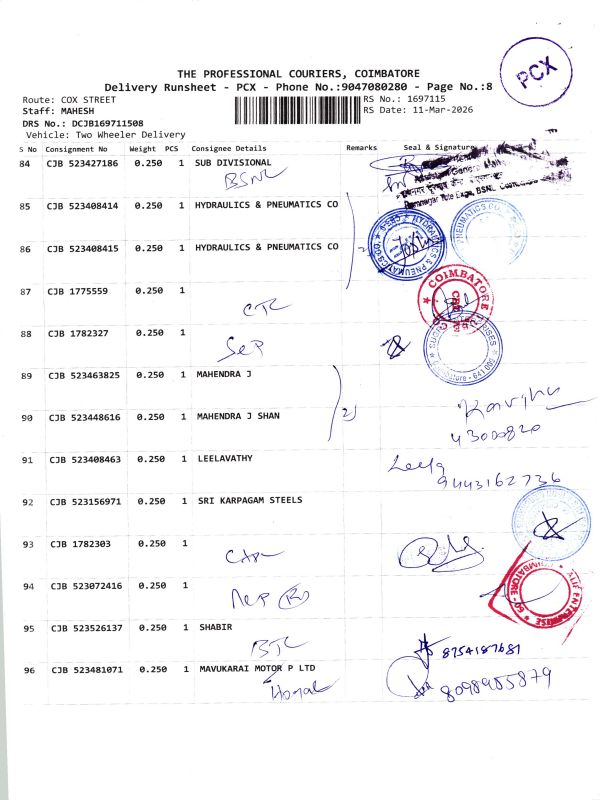 THE PROFESSIONAL COURIERS, COIMBATORE
PCX
Delivery Runsheet - PCX - Phone No.:9047080280 - Page No.:8
Route: COX STREET RS No.: 1697115
Staff: MAHESH RS Date: 11-Mar-2026
DRS No.: DCJB169711508
Vehicle: Two Wheeler Delivery
S No Consignment No Weight PCS Consignee Details Remarks Seal & Signature
84 CJB 523427186 0.250 1 SUB DIVISIONAL
BSNL
85 CJB 523408414 0.250 1 HYDRAULICS & PNEUMATICS CO
86 CJB 523408415 0.250 1 HYDRAULICS & PNEUMATICS CO
HYDRAULICS & PNEUMATICS CO.
87 CJB 1775559 0.250 1
COIMBATORE
88 CJB 1782327 0.250 1
89 CJB 523463825 0.250 1 MAHENDRA J
90 CJB 523448616 0.250 1 MAHENDRA J SHAN
2)
43000820
91 CJB 523408463 0.250 1 LEELAVATHY
Leela
9443162736
92 CJB 523156971 0.250 1 SRI KARPAGAM STEELS
93 CJB 1782303 0.250 1
94 CJB 523072416 0.250 1
95 CJB 523526137 0.250 1 SHABIR
8754187681
96 CJB 523481071 0.250 1 MAVUKARAI MOTOR P LTD
8098985879